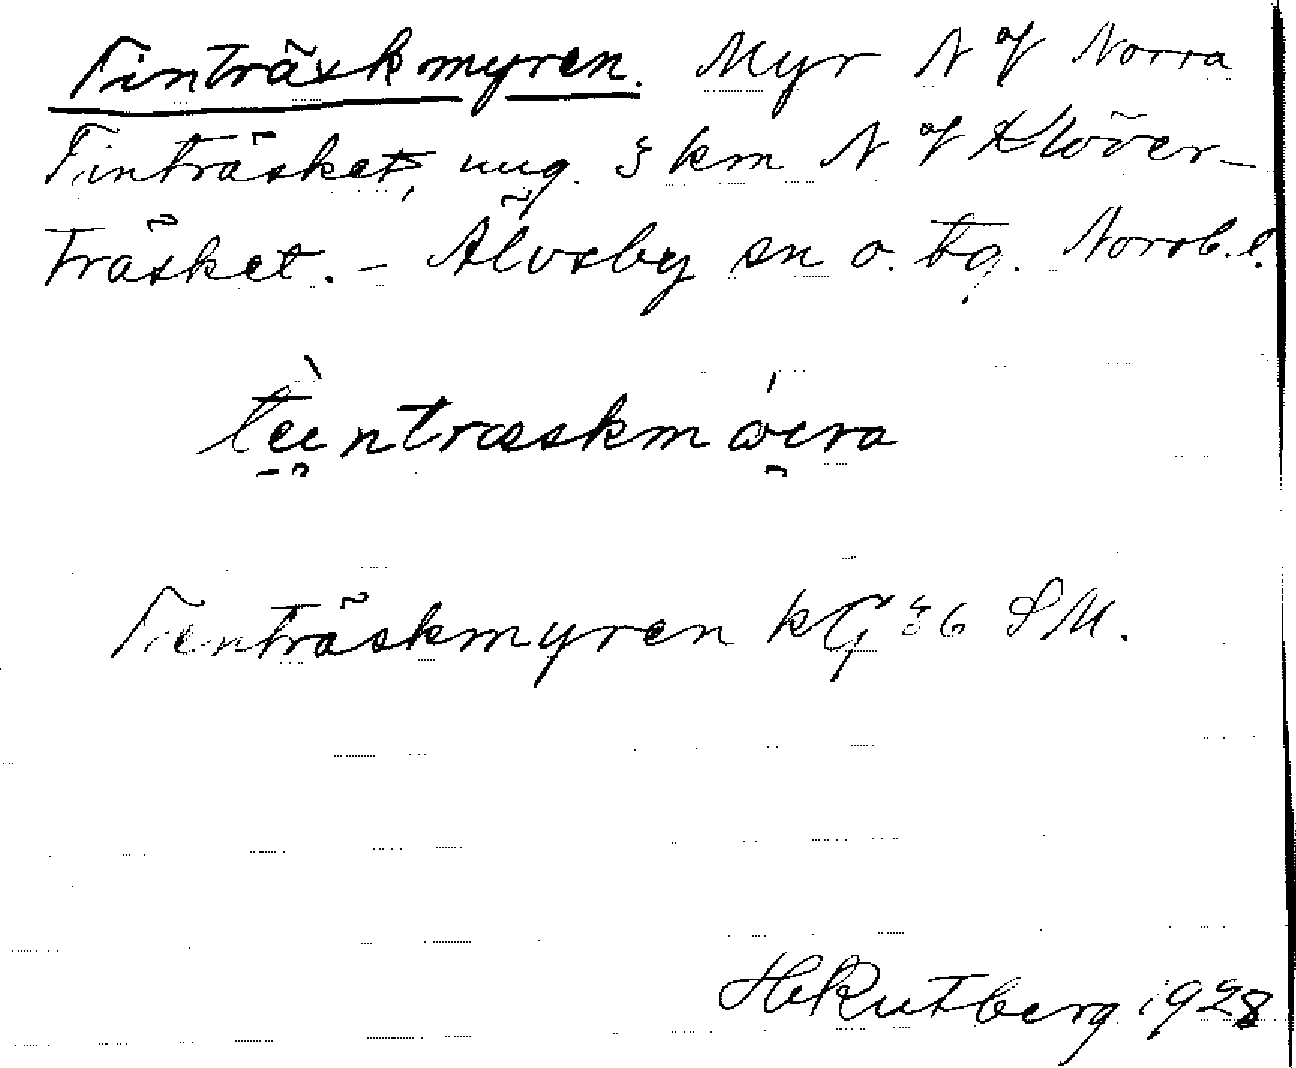 Tinträskmyren. Myr N of Norra
Tinträsket, ung. 3 km N of Klöver-
träsket. - Älvsby sn o. tg. Norrb. l.
Tienträskmyren kG 36 SM.
H Rutberg 1928